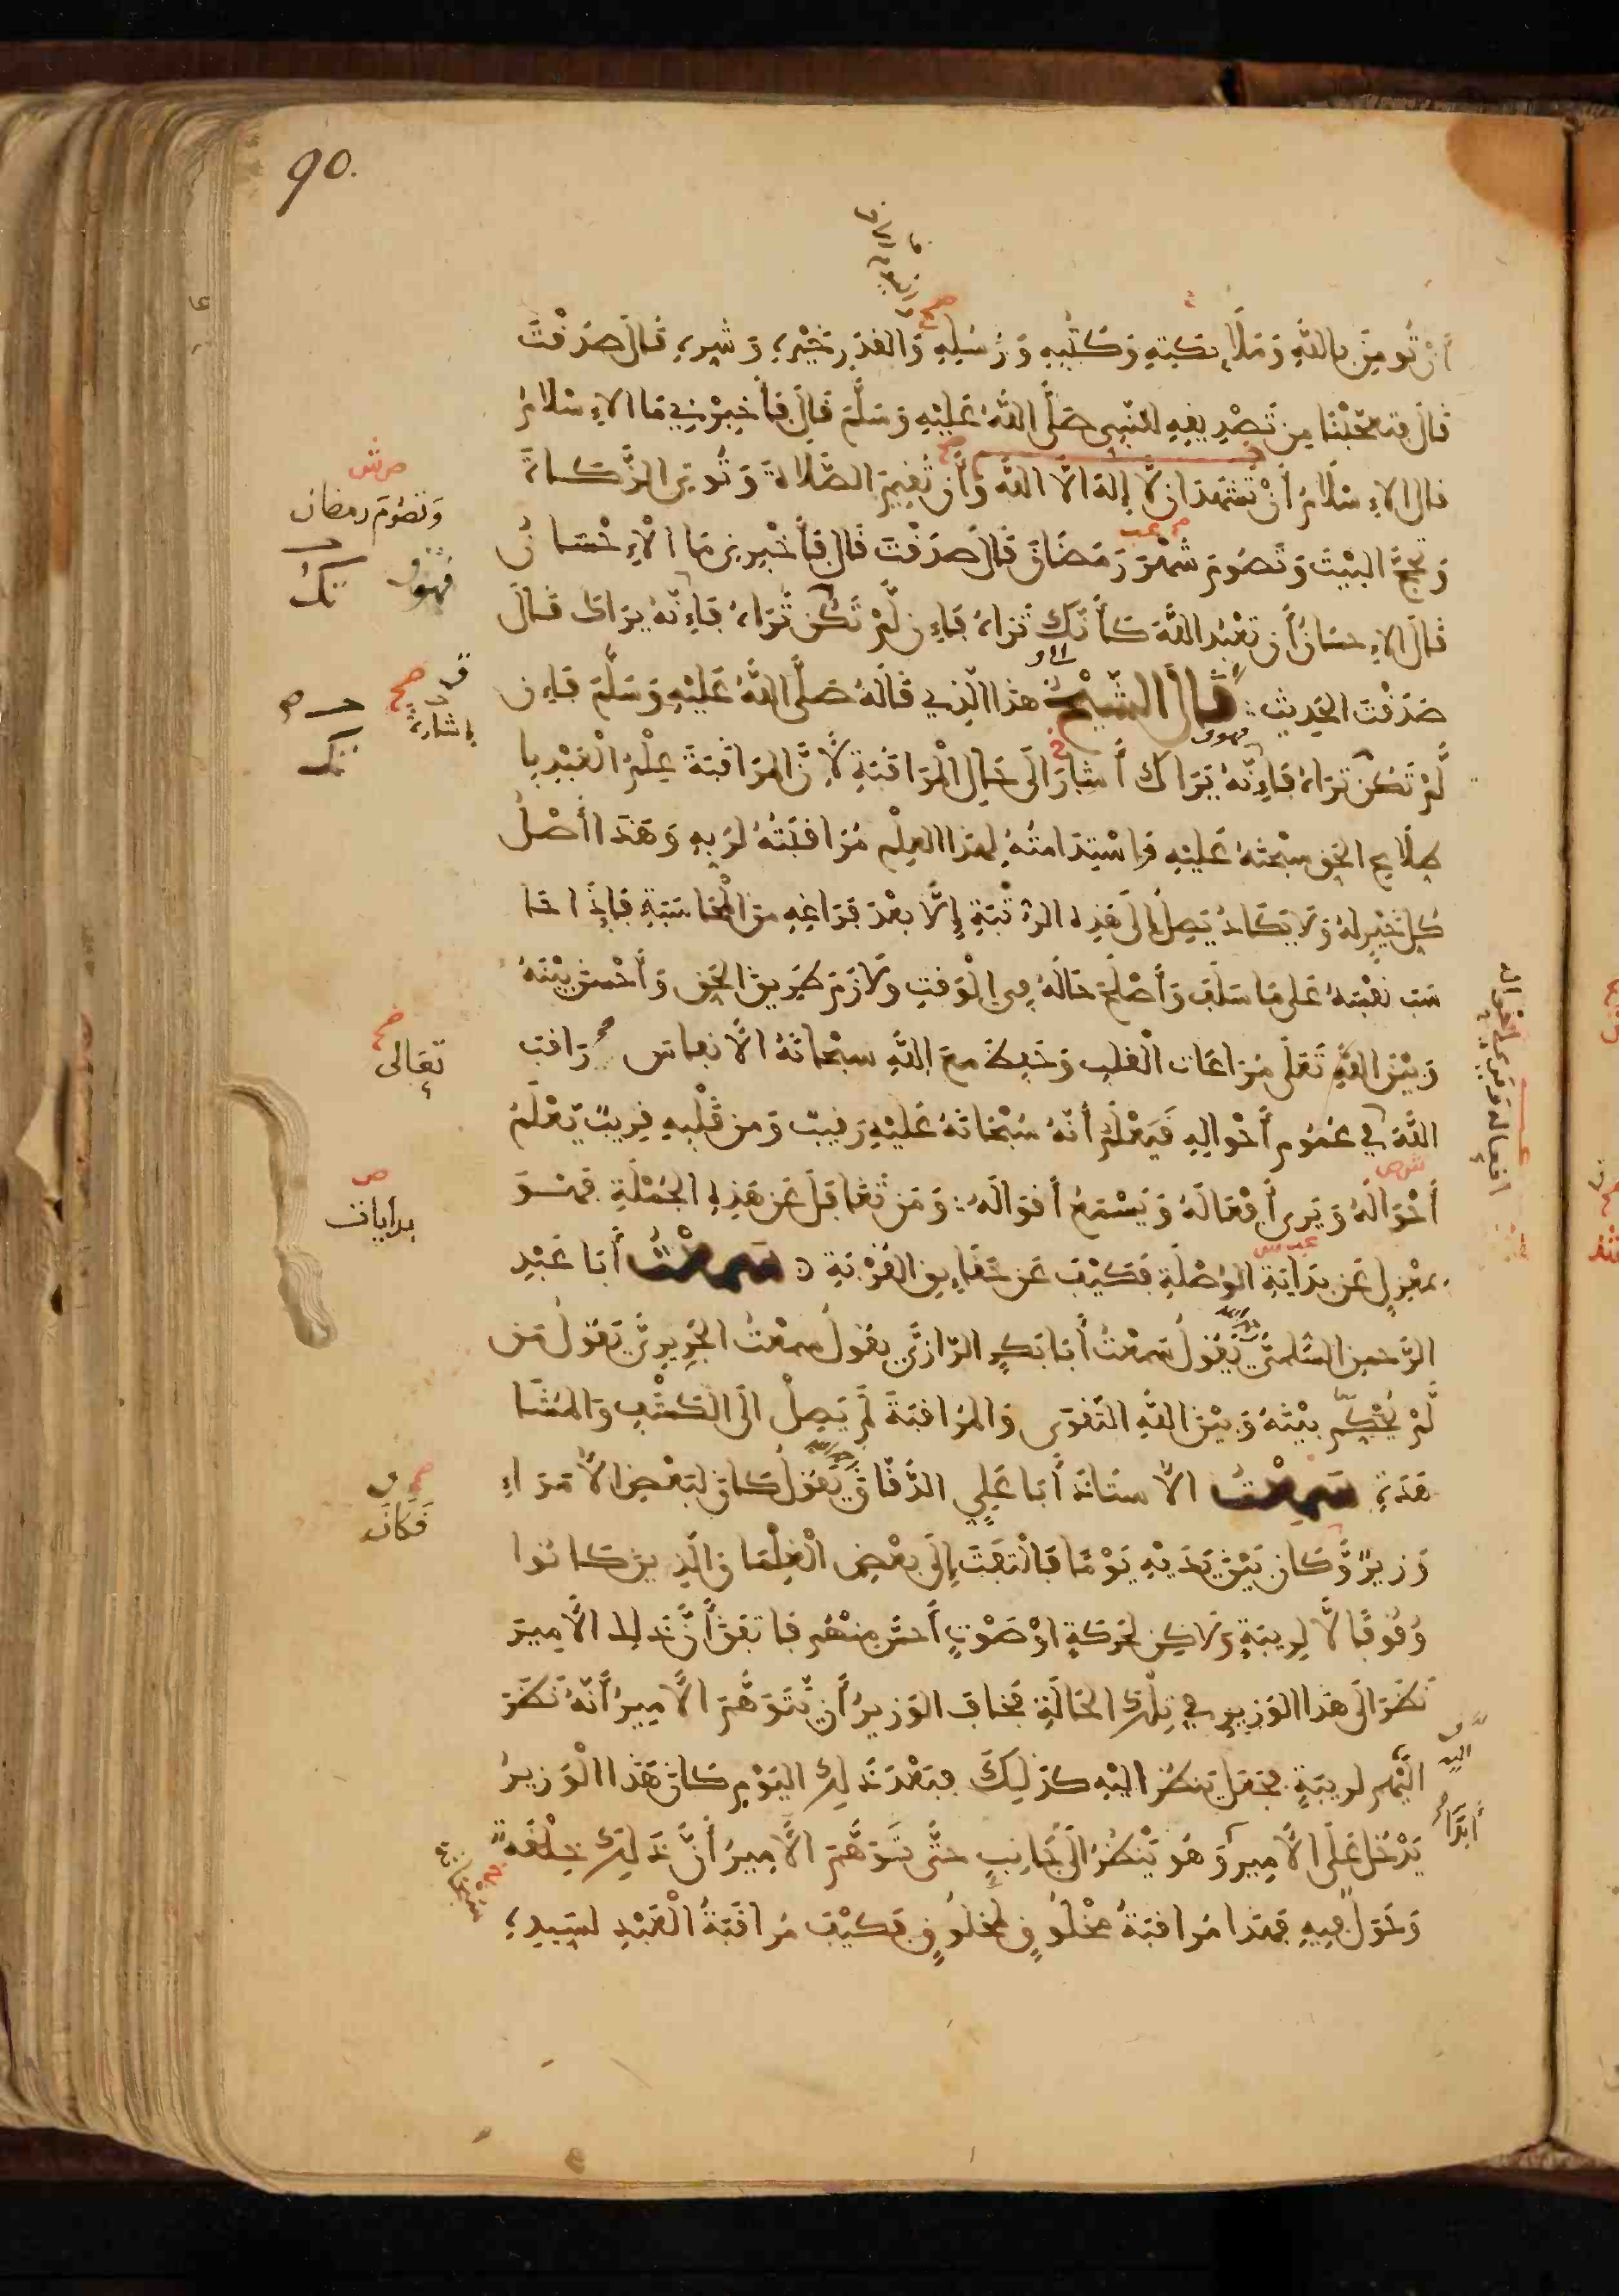 90.
أن تُومِنَ بِاللهِ وَمَلَائِكَتِهِ وَكُتُبِهِ وَرُسُلِهِ وَالقَدَرِ خَيْرِهِ وَشَرِّهِ قَالَ صَدَقْتَ
قَالَ فتعجّبْنَا مِن تَصْدِيقِهِ للنّبِي صَلَّى اللهُ عَلَيْهِ وَسَلَّمَ قَالَ فَأَخْبِرْنِي مَا الاِسْلَامُ
قال الاِسْلَامُ أَنْ تَشْهَدَ ان لَّا إِلهَ الَّا اللهُ وَأَن تُقِيمَ الصَّلَاةَ وَتُوتِيَ الزَّكَاةَ
وَتحجَّ البَيْتَ وَتَصُومَ شَهْرَ رَمَضَانَ قَالَ صَدَقْتَ قَال فَأَخْبِرنِي مَا الْاِحْسَانُ
قَالَ الاِحسَانُ أَن تعْبُدَ اللهَ كَأَنَّكَ تَرَاهُ فَإِن لَّمْ تَكُن تَرَاهُ فَإِنّهُ يَرَاكَ قَالَ
صَدَقْتَ الحَدِيث قَالَ الشَّيْخُ هَذَا الّذِي قَالَهُ صَلَّى اللهُ عَلَيْهِ وَسَلَّمَ فَإِن
لَّمْ تَكُنْ تَرَاهُ فَإِنَّهُ يَرَاكَ أَشَارَ الَى حَالِ الْمُرَاقَبَةِ لأَنَّ المُرَاقَبَةَ عِلْمُ الْعَبْدِ با
طِلَاعِ الحَقِ سبحَنَهُ عَلَيْهِ فَاسْتِدَامَتُهُ لِهَذَا العِلْمِ مُرَاقَبَتُهُ لِرَبِهِ وَهَذَا أَصْلُ
كُلِ خَيْرٍ لَهُ وَلَا يَكَادُ يَصِلُ إِلَى هَذِهِ الرُّتْبَةِ إِلَّا بَعْدَ فَرَاغِهِ مِنَ الْمُحَاسَبَةِ فَإِذَا حَا
سَبَ نَفْسَهُ عَلَى مَا سَلَفَ وَأَصْلَحَ حَالَهُ فِي الْوَقْتِ وَلَازَمَ طَرِيقَ الحَقِ وَأَحْسَنَ بَيْنَهُ
وَبَيْنَ اللهِ تَعَلَى مُرَاعَات القَلْبِ وَحَفِظَ مَعَ اللهِ سبْحَانَهُ الَانفاس رَاقَب
اللهَ فِي عُمُومِ أَحْوَالِهِ فَيَعْلَمُ أَنّهُ سُبْحَانَهُ عَلَيْهِ رَقِيبٌ وَمِن قَلْبِهِ قَرِيبٌ يَعْلَمُ
أَحْوَالَهُ وَيَرَى أَفْعَالَهُ وَيَسْمَعُ أَقْوَالَهُ وَمَن تَغَافَلَ عَن هَذِهِ الجُمْلَةِ فَهُوَ
بمَعْزِلٍ عَن بِدَايَةِ الوُصْلَةِ فَكَيْفَ عَن حَقَايِقِ القُرْبَةِ سَمِعْتُ أَبَا عَبْدِ
الرَّحمنِ السُّلَمِيَّ يَقُولُ سَمِعْتُ أَبَا بَكرٍ الرَّازِيَّ يقُولُ سَمِعْتُ الجُرِيرِيَّ يَقُولُ مَن
لَّمْ يُحْكِمْ بَيْنَهُ وَبَيْنَ اللهِ التَّقْوَى وَالمُرَاقَبَةَ لَمْ يَصِلْ الَى الكَشْفِ وَالمُشَا
هَدَةِ سَمِعْتُ الأسْتَاذَ أَبَا عَلِي الدَّقَّاقَ يَقُولُ كَانَ لِبَعْضِ الأمَرَاءِ
وَزِيرٌ وَّكَان بَيْنَ يَدَيْهِ يَوْمًا فَالْتَفَتَ إِلَى بَعْضِ الْغِلْمَانِ الَّذِينَ كَانُوا
وُقُوفًا لَّا لِرِيبَةٍ وَلَاكِن لِحَرَكَةٍ اوْ صَوْتٍ أَحَسَّ مِنْهُم فَاتّفَقَ أَنَّ ذَلِكَ الأَمِيرَ
نَظَرَ الَى هَذَا الوَزِيرِ فِي تِلْكَ الحَالَةِ فَخَافَ الوَزِيرُ أَن يَّتَوَهَّمَ الأَمِيرُ أَنَّهُ نَظَرَ
الَيْهِم لِرِيبَةٍ فجَعَلَ يَنظُرُ اليْهِ كَذَلِكَ فبَعْدَ ذَلِكَ اليَوْمِ كَانَ هَذَا الْوَزِيرُ
يَدْخُلُ عَلَى الأَمِيرِ وَهُوَ يَنْظُرُ الَى جَانِبٍ حَتَّى تَوَهَّمَ الأَمِيرُ أَنَّ ذَلِكَ خِلْقَةٌ
وَحَوَلٌ فِيهِ فَهَذَا مُرَاقَبَةُ مَخْلُوقٍ لِمَخلُوقٍ فَكَيْفَ مُرَاقَبَةُ الْعَبْدِ لسَيّدِهِ
وَتصُومَ رمضان
إشارة
تعَالى
بدايات
فَكَانَ
أبَدًا